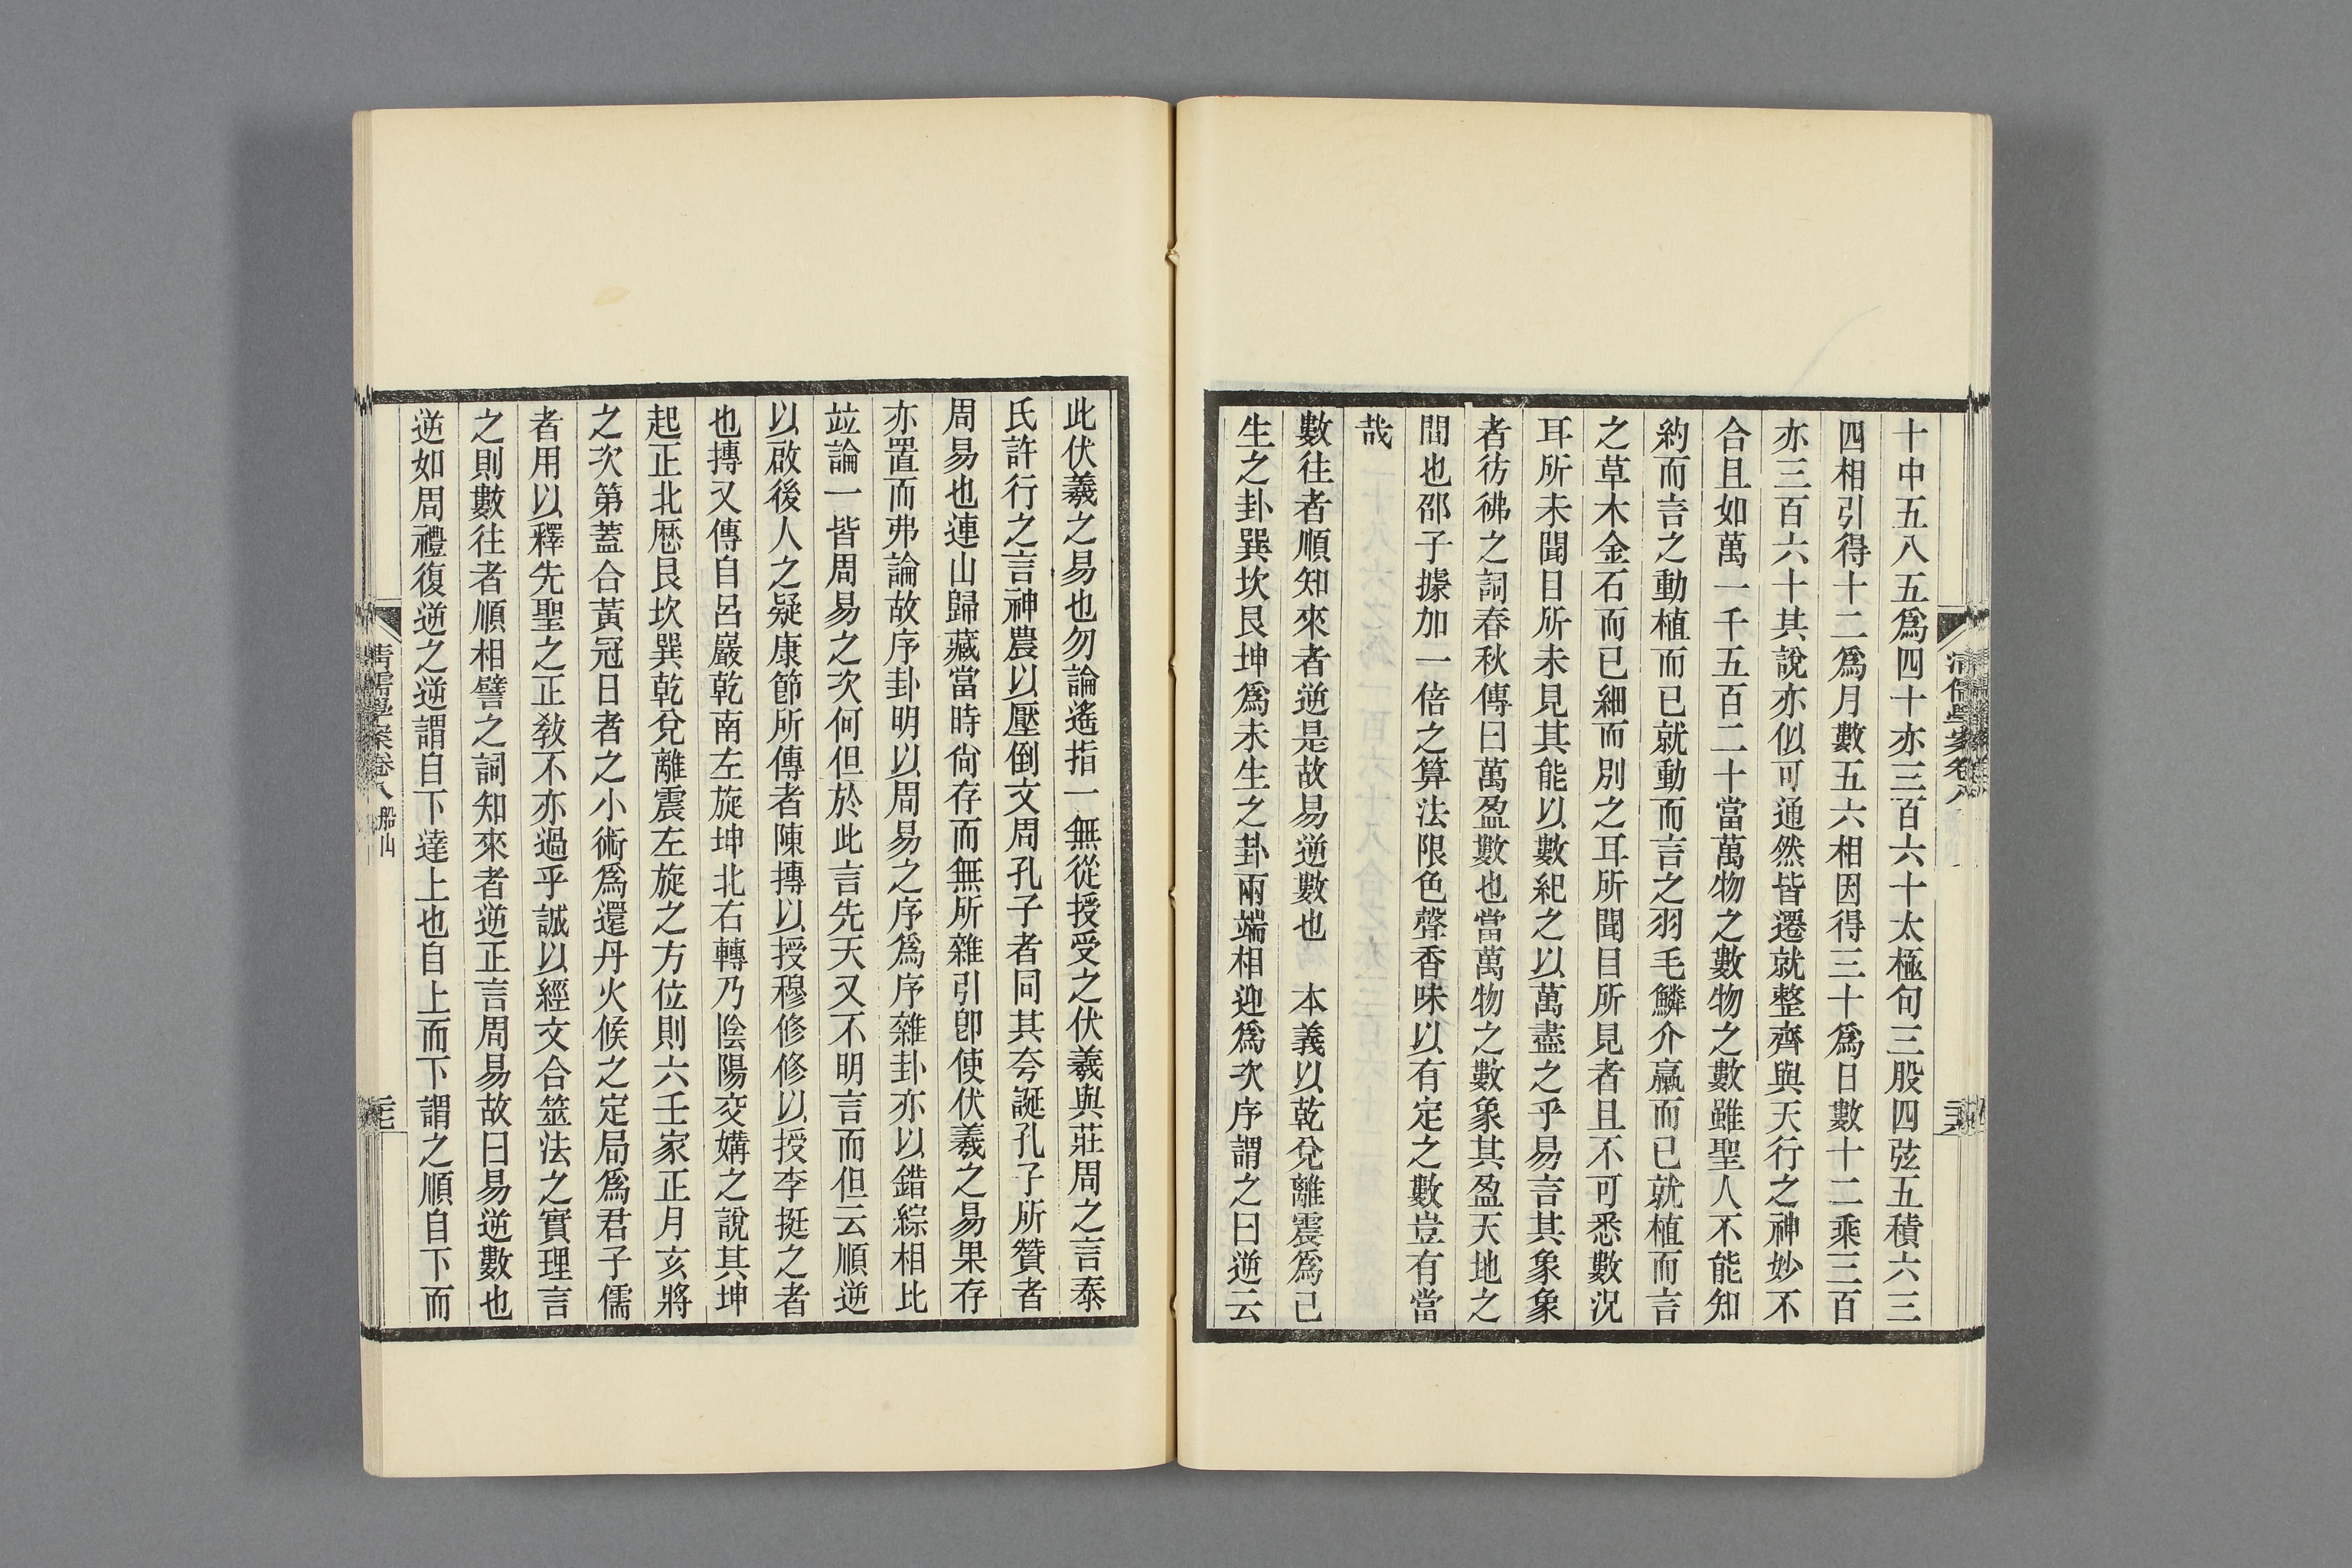 十中五八五爲四十亦三百六十太極句三股四弦五積六三
四相引得十二爲月數五六相因得三十爲日數十二乘三百
亦三百六十其說亦似可通然皆遷就整齊與天行之神妙不
合且如萬一千五百二十當萬物之數物之數雖聖人不能知
約而言之動植而已就動而言之羽毛鱗介蠃而已就植而言
之草木金石而已細而別之耳所聞目所見者且不可悉數況
耳所未聞目所未見其能以數紀之以萬盡之乎易言其象象
者彷彿之詞春秋傳曰萬盈數也當萬物之數象其盈天地之
間也邵子據加一倍之算法限色聲香味以有定之數豈有當
哉
數往者順知來者逆是故易逆數也 本義以乾兌離震爲已
生之卦巽坎艮坤爲未生之卦兩端相迎爲次序謂之曰逆云
清儒學案卷八
此伏羲之易也勿論遙指一無從授受之伏羲與莊周之言泰
氏許行之言神農以壓倒文周孔子者同其夸誕孔子所贊者
周易也連山歸藏當時尙存而無所雜引卽使伏羲之易果存
亦置而弗論故序卦明以周易之序爲序雜卦亦以錯綜相比
竝論一皆周易之次何但於此言先天又不明言而但云順逆
以啟後人之疑康節所傳者陳摶以授穆修修以授李挺之者
也摶又傳自呂巖乾南左旋坤北右轉乃陰陽交媾之說其坤
起正北歷艮坎巽乾兌離震左旋之方位則六壬家正月亥將
之次第蓋合黃冠日者之小術爲還丹火候之定局爲君子儒
者用以釋先聖之正敎不亦過乎誠以經文合筮法之實理言
之則數往者順相譬之詞知來者逆正言周易故曰易逆數也
逆如周禮復逆之逆謂自下達上也自上而下謂之順自下而
清儒學案卷八 船山